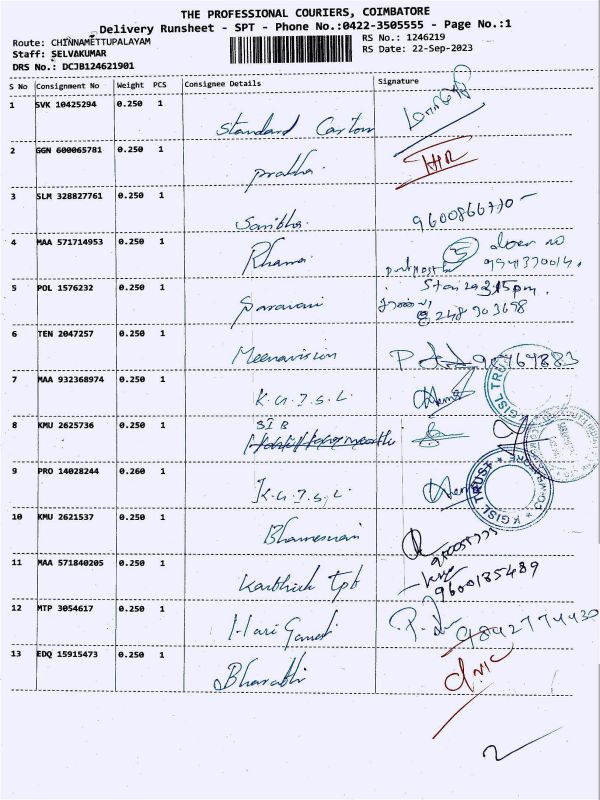 THE PROFESSIONAL COURIERS, COIMBATORE
Delivery Runsheet - SPT - Phone No.:0422-3505555 - Page No.:1
Route: CHINNAMETTUPALAYAM
RS No.: 1246219
Staff: SELVAKUMAR
RS Date: 22-Sep-2023
DRS No.: DCJB124621901
S No Consignment No Weight PCS Consignee Details Signature
1 SVK 10425294 0.250 1
Standard Carton
2 GGN 600065781 0.250 1
Prabha
3 SLM 328827761 0.250 1
9600866770
4 MAA 571714953 0.250 1
door no
5 POL 1576232 0.250 1
Saravani
6 TEN 2047257 0.250 1
Meenavision
7 MAA 932368974 0.250 1
K.G.I.S.L.
8 KMU 2625736 0.250 1
SIB
9 PRO 14028244 0.260 1
K.G.I.S.L.
KGISL TRUST
10 KMU 2621537 0.250 1
11 MAA 571840205 0.250 1
Karthick Tpt
9600185489
12 MTP 3054617 0.250 1
Hari Ganesh
9842774430
13 EDQ 15915473 0.250 1
Bharathi